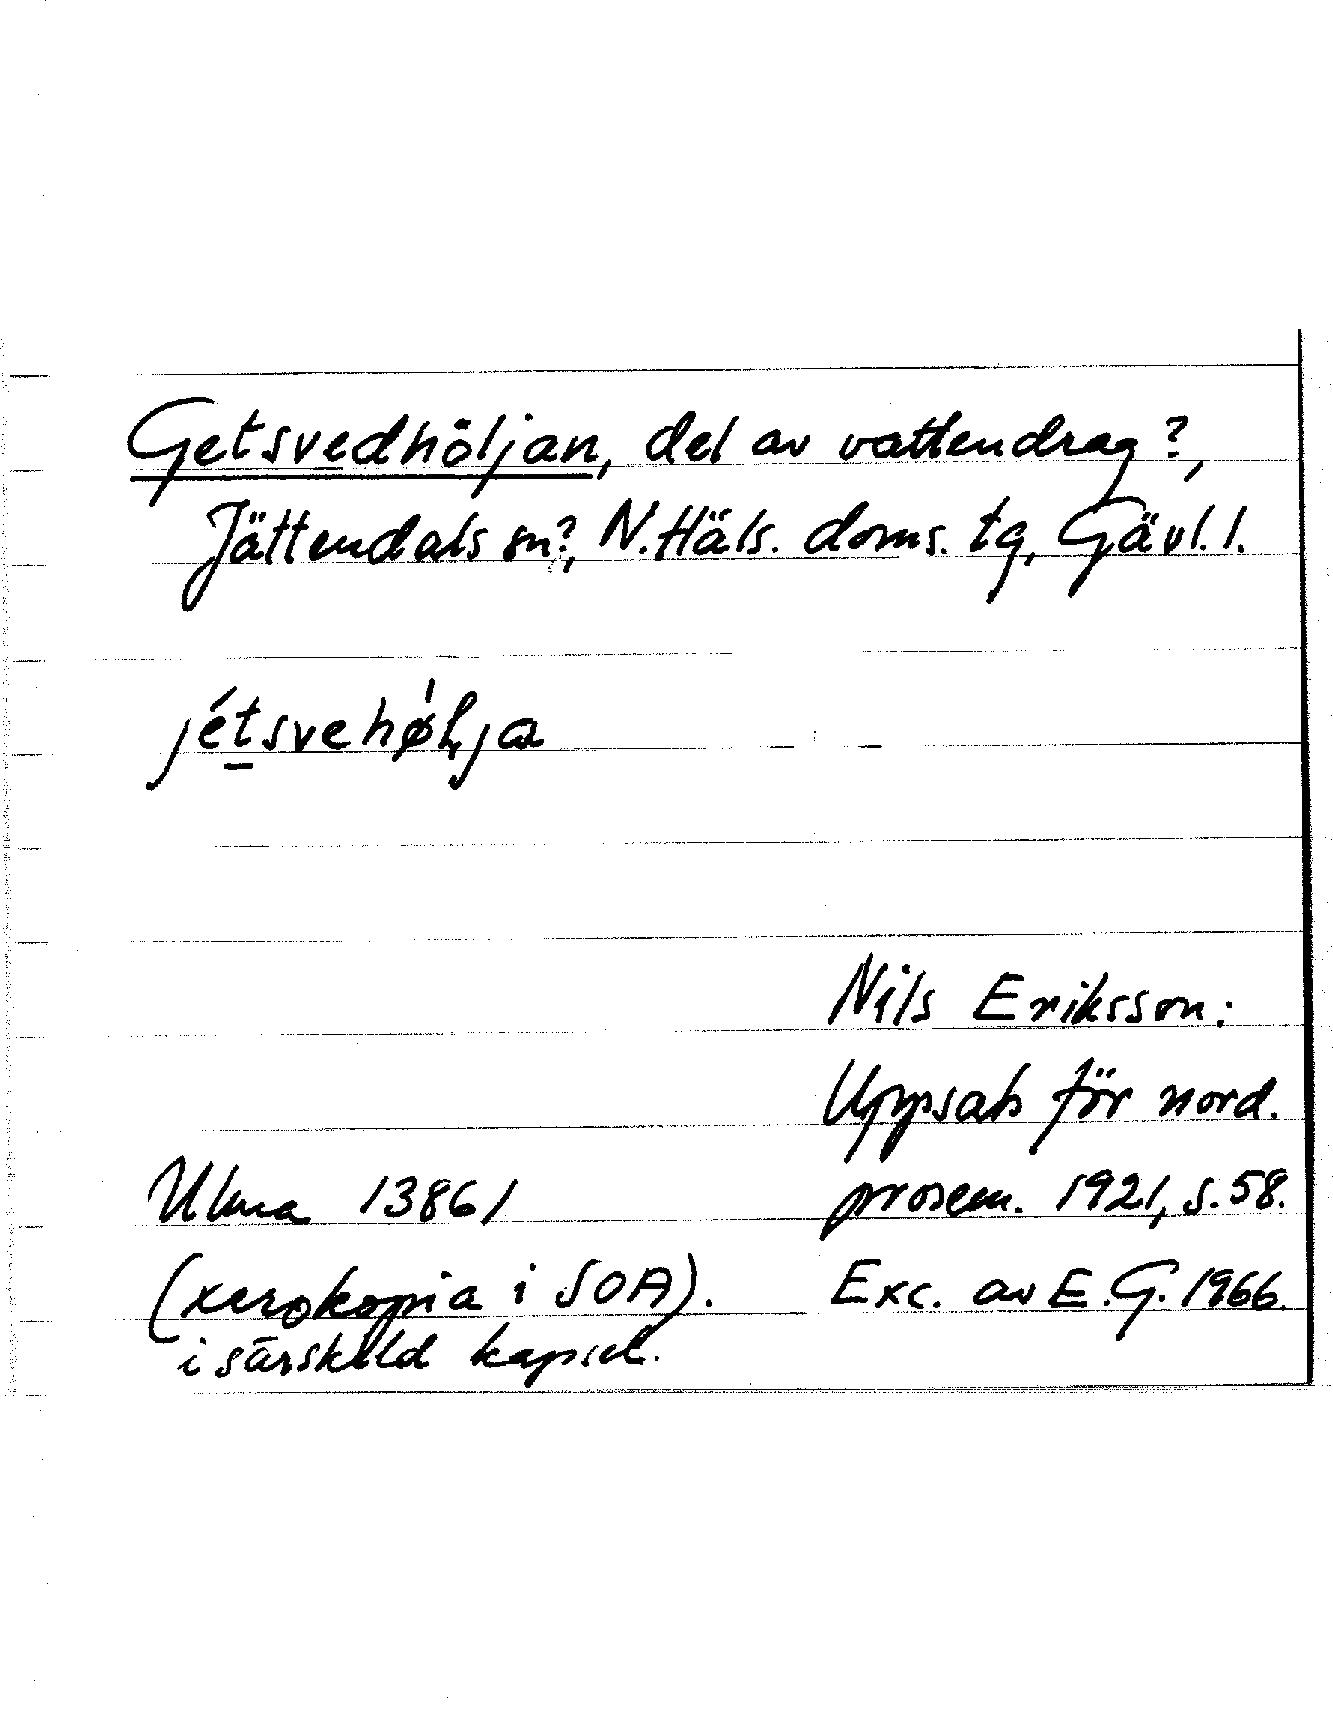 Getsvedhöljan, del av vattendrag?,
Jättendals sn?, N. Häls. doms. tg, Gävl. l.
jétsvehøl̥ja
Nils Eriksson:
Uppsats för nord.
Ulma 13861 prosem. 1921, s. 58.
(xerokopia i SOA). Exc. av E. G. 1966.
i särskild kapsel.